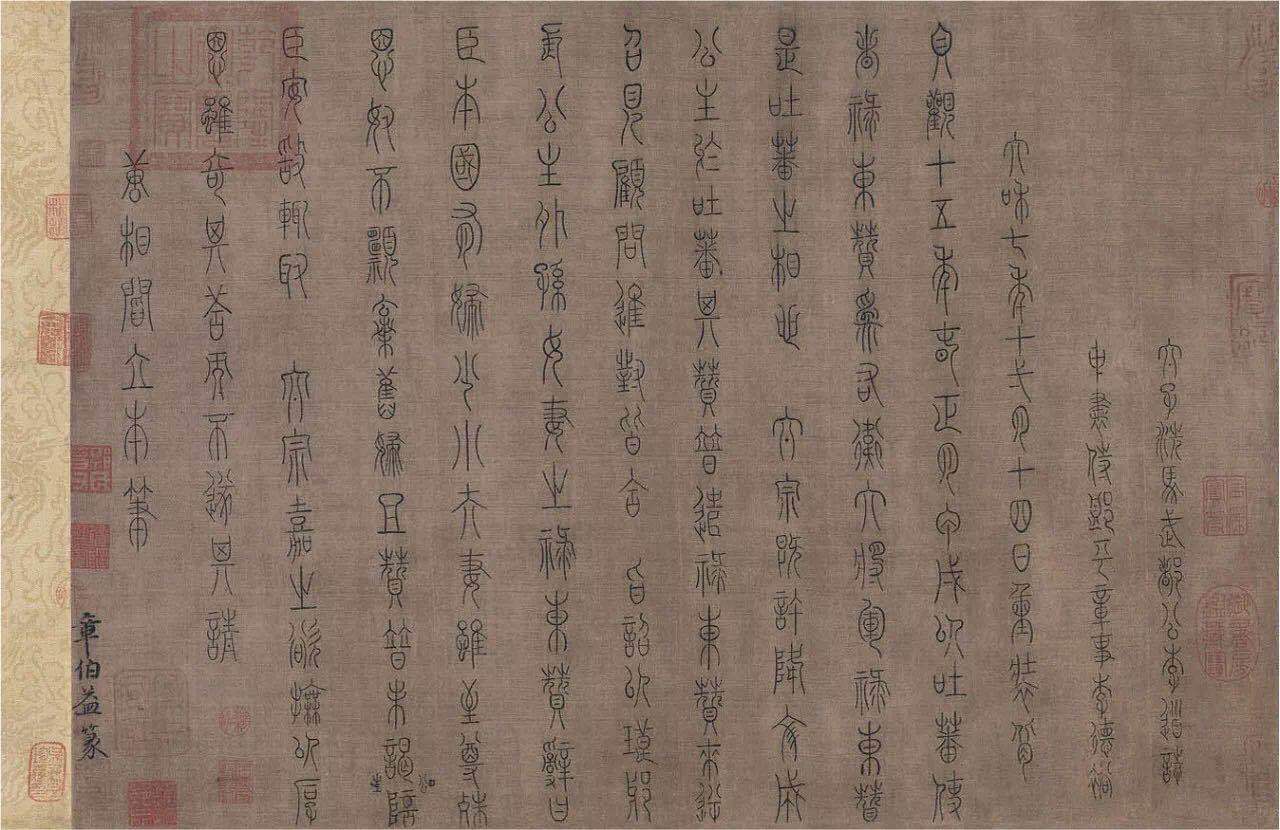 太子洗馬武都公李道誌
中書侍郎平章事李德裕
太和七年十一月十四日重裝背
貞觀十五年春正月甲戌以吐蕃使
者祿東贊為右衛大將軍祿東贊
是吐蕃之相也 太宗既許降文成
公主於吐蕃其贊普遣祿東贊來逆
召見顧問進對皆合 旨詔以琅邪
長公主外孫女妻之祿東贊辭曰
臣本國有婦少小夫妻雖至尊殊
恩奴不願棄舊婦且贊普未謁公主陪
臣安敢輒取 太宗嘉之欲撫以厚
恩雖奇其答而不遂其請
唐相閻立本筆
章伯益篆